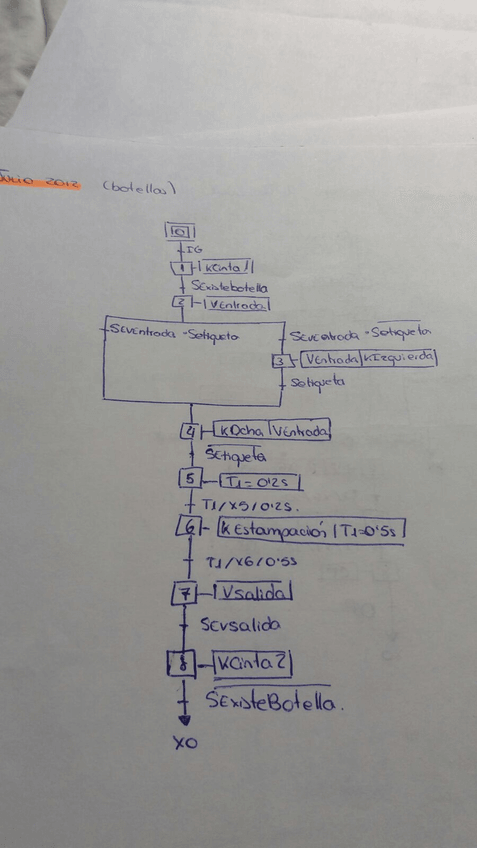 Junio 2012 (botellas)
0
IG
1 KCinta1
SExistebotella
2 VEntrada
SEVEntrada · Setiqueta
SEVentrada · Setiqueta
3 VEntrada KIzquierda
Setiqueta
4 KDcha VEntrada
SEtiqueta
5 T1=0'2s
T1/X5/0'2s.
6 KEstampación T1=0'5s
T1/X6/0'5s
7 Vsalida
SEVsalida
8 KCinta2
SExisteBotella.
X0